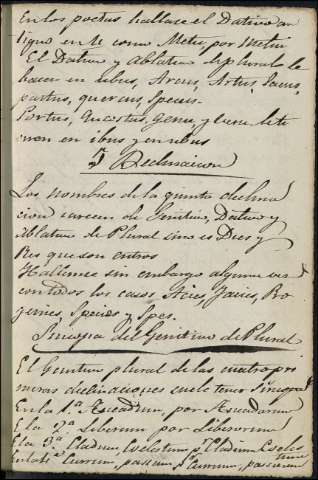 En los poetas hallase el Dativo an
tiguo en te como Metu, por Metui
El Dativo y Ablativo de plural le
hacen en ubus, Arcus, Artus, Lacus,
partus, quercus, Specus.
Portus, Questus, Genu, y veru le tie
nen en ibus y en ubus
5ª Declinacion
Los nombres de la quinta declina
cion carecen de Genitivo, Dativo y
Ablativo de Plural sino es Dies y
Res que son enteros
Hallense sin embargo algunas vez
con todos los casos, Acies, Facies, Pro
genies, Species y Spes.
Sincopa del Genitivo de Plural
El Genitivo plural de las cuatro pri
meras declinaciones suele tener sincopa
En la 1ª Aeneadum, por Aeneadarum
En la 2ª Liberum por Liberorum
En la 3ª Cladum, Celestum pr Cladium Celes
tium
En la 4ª Currum, passum pr Curruum, passuum